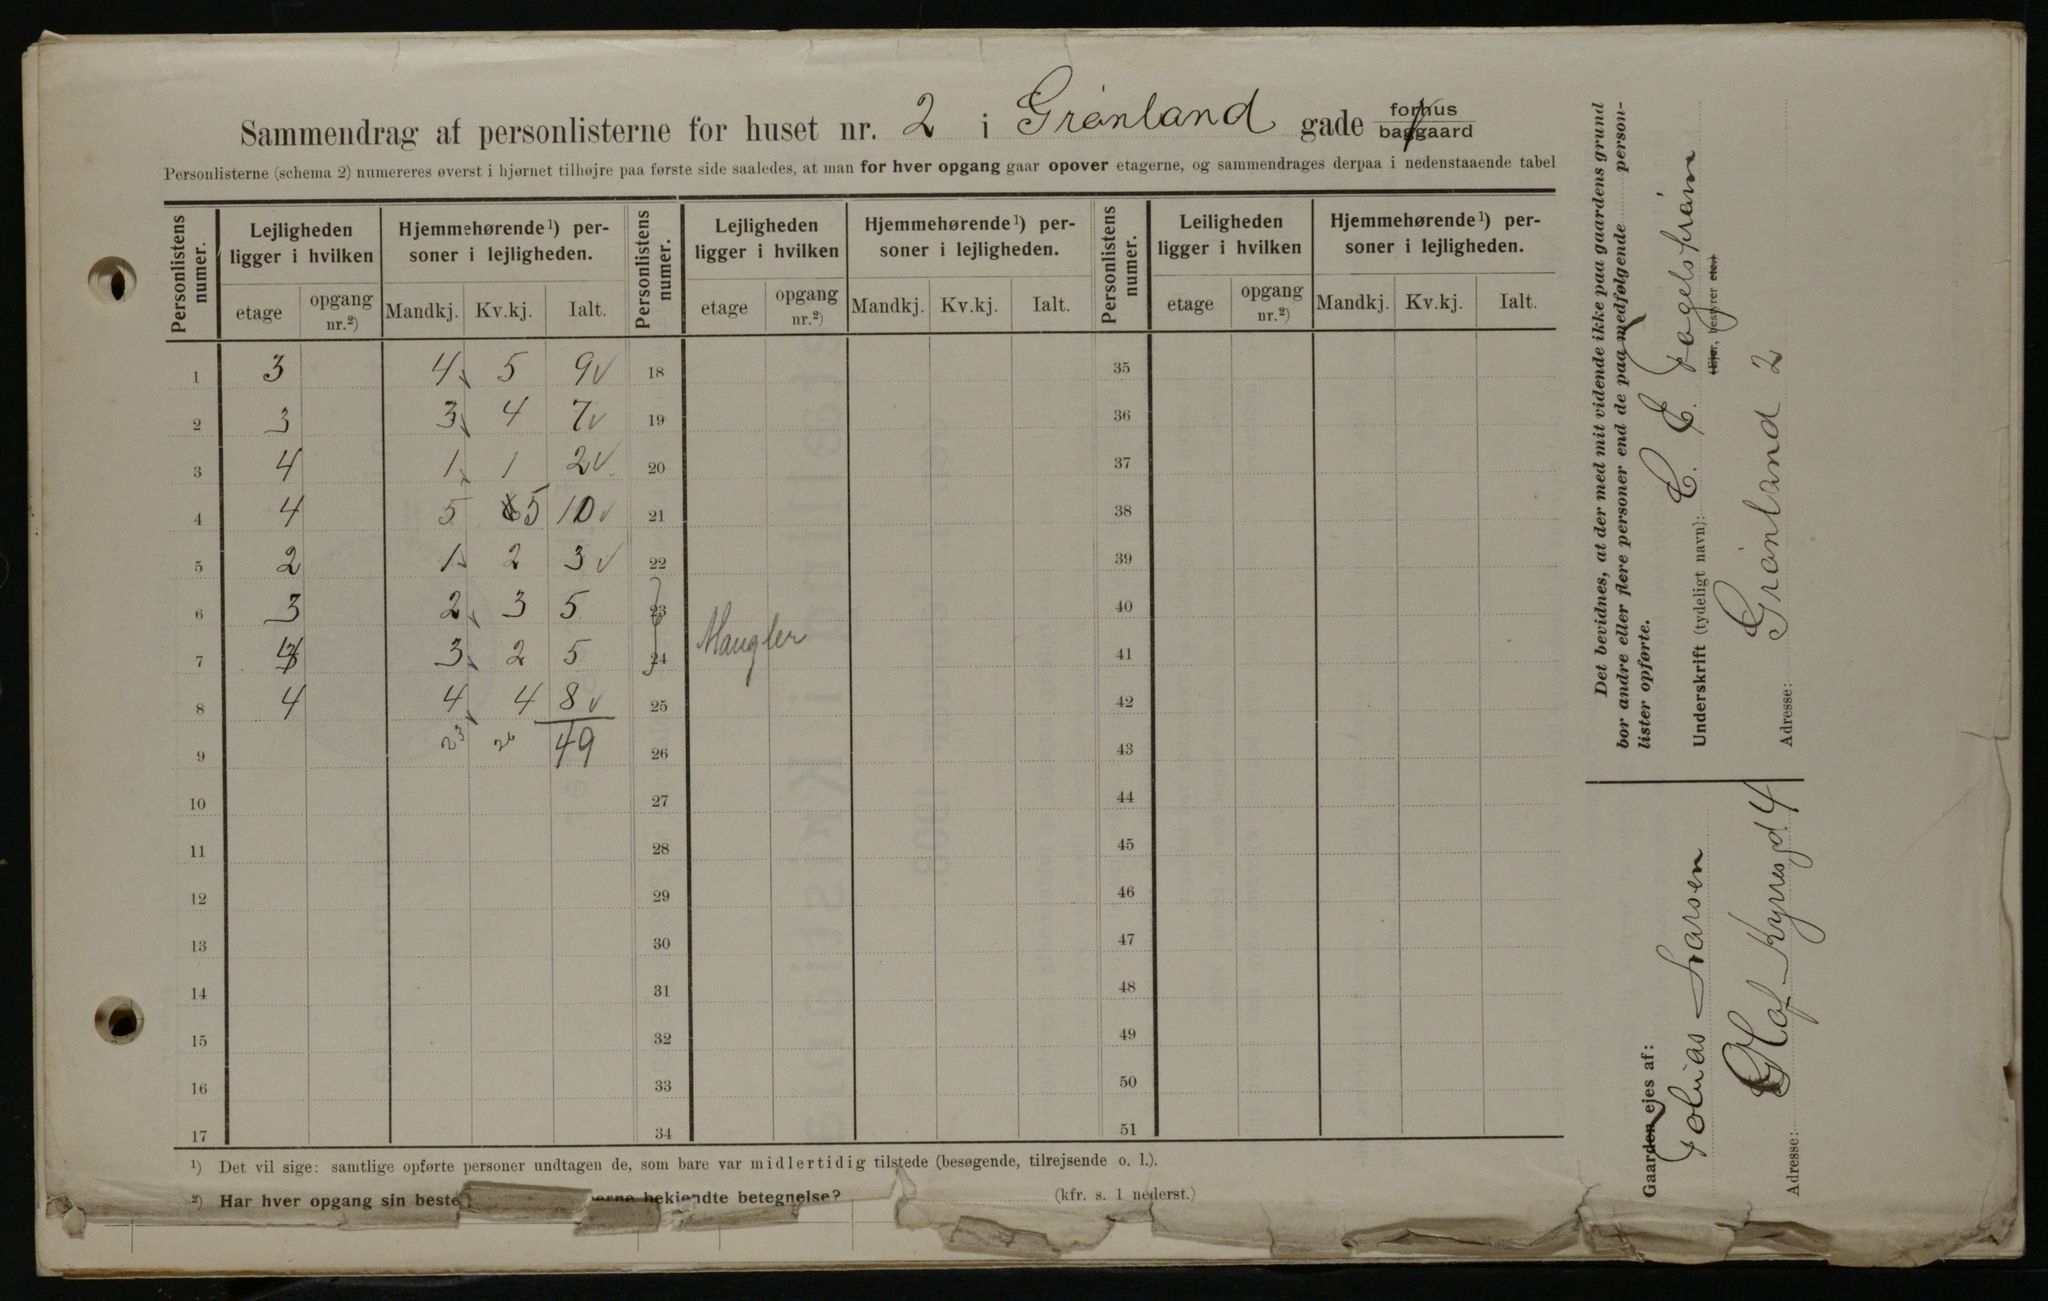 Sammendrag af personlisterne for huset nr. 2 i Grønland gade forhus baggaard
Personlisterne (schema 2) numereres øverst i hjørnet tilhøjre paa første side saaledes, at man for hver opgang gaar opover etagerne, og sammendrages derpaa i nedenstaaende tabel
Personlistens numer. Lejligheden ligger i hvilken Hjemmehørende¹) personer i lejligheden. Personlistens numer. Lejligheden ligger i hvilken Hjemmehørende¹) personer i lejligheden. Personlistens numer. Leiligheden ligger i hvilken Hjemmehørende¹) personer i lejligheden.
etage opgang nr.²) Mandkj. Kv.kj. Ialt. etage opgang nr.²) Mandkj. Kv.kj. Ialt. etage opgang nr.²) Mandkj. Kv.kj. Ialt.
1 3 4 5 9 18 35
2 3 3 4 7 19 36
3 4 1 1 2 20 37
4 4 5 5 10 21 38
5 2 1 2 3 22 39
6 3 2 3 5 23 40
Mangler
7 3 2 5 24 41
8 4 4 4 8 25 42
9 23 26 49 26 43
10 27 44
11 28 45
12 29 46
13 30 47
14 31 48
15 32 49
16 33 50
17 34 51
¹) Det vil sige: samtlige opførte personer undtagen de, som bare var midlertidig tilstede (besøgende, tilrejsende o. l.).
²) Har hver opgang sin beste erne bekjendte betegnelse? (kfr. s. 1 nederst.)
Det bevidnes, at der med mit vidende ikke paa gaardens grund
bor andre eller flere personer end de paa medfølgende personlister opførte.
Underskrift (tydeligt navn): C. E. Fagelstrøm
(Ejer, bestyrer etc.)
Adresse: Grønland 2
Gaarden ejes af:
Tobias Larsen
Adresse: Olaf Kyrresgd 4